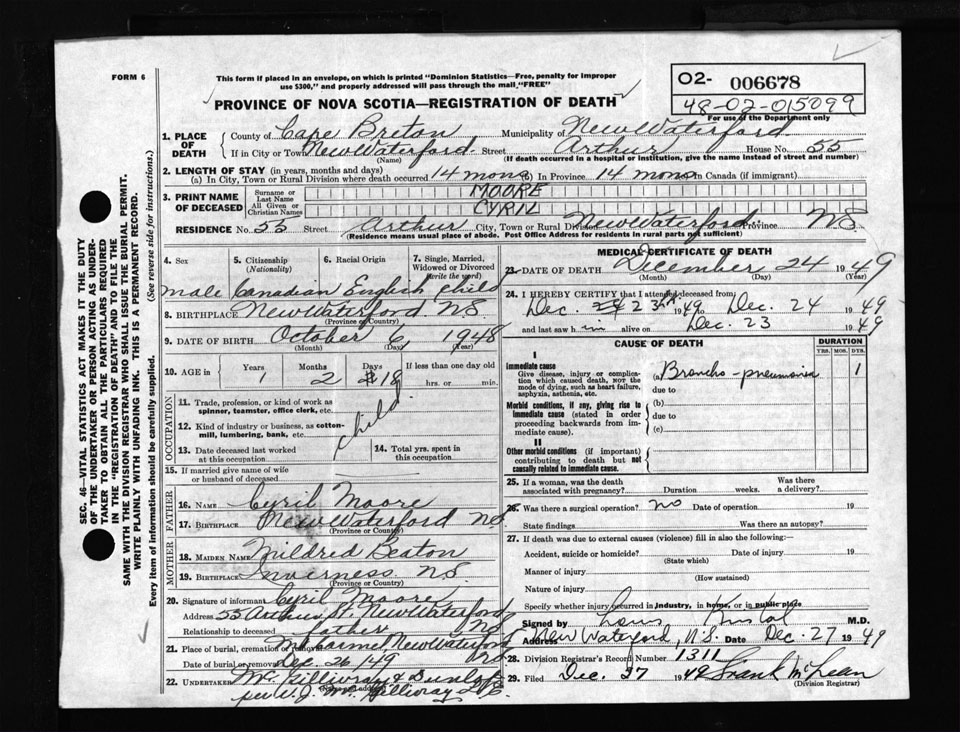 FORM 6
This form if placed in an envelope, on which is printed "Dominion Statistics—Free, penalty for improper
use $300," and properly addressed will pass through the mail, "FREE"
PROVINCE OF NOVA SCOTIA—REGISTRATION OF DEATH
O2- 006678
48-02-015099
For use of the Department only
1. PLACE OF DEATH
County of Cape Breton Municipality of New Waterford
If in City or Town New Waterford Street Arthur House No. 55
(Name) (If death occurred in a hospital or institution, give the name instead of street and number)
2. LENGTH OF STAY (in years, months and days)
(a) In City, Town or Rural Division where death occurred 14 mons (b) In Province 14 mons In Canada (if immigrant)
3. PRINT NAME OF DECEASED
Surname or Last Name MOORE
All Given or Christian Names CYRIL
RESIDENCE No. 55 Street Arthur City, Town or Rural Division New Waterford Province N.S.
(Residence means usual place of abode. Post Office Address for residents in rural parts not sufficient)
4. Sex
male
5. Citizenship (Nationality)
Canadian
6. Racial Origin
English
7. Single, Married, Widowed or Divorced (write the word)
child
8. BIRTHPLACE New Waterford N.S.
(Province or Country)
9. DATE OF BIRTH October 6 1948
(Month) (Day) (Year)
10. AGE in Years Months Days If less than one day old
1 2 18 hrs. or min.
OCCUPATION
11. Trade, profession, or kind of work as spinner, teamster, office clerk, etc.
12. Kind of industry or business, as cotton-mill, lumbering, bank, etc.
child
13. Date deceased last worked at this occupation
14. Total yrs. spent in this occupation
15. If married give name of wife or husband of deceased
FATHER
16. NAME Cyril Moore
17. BIRTHPLACE New Waterford NS
(Province or Country)
MOTHER
18. MAIDEN NAME Mildred Beaton
19. BIRTHPLACE Inverness N.S.
(Province or Country)
20. Signature of informant Cyril Moore
Address 55 Arthur St New Waterford
Relationship to deceased father NS
21. Place of burial, cremation or removal Mt Carmel, New Waterford
NS
Date of burial or removal Dec. 26/49
22. UNDERTAKER McGillivray & Dunlop
per J. McGillivray
MEDICAL CERTIFICATE OF DEATH
23. DATE OF DEATH December 24 1949
(Month) (Day) (Year)
24. I HEREBY CERTIFY that I attended deceased from
Dec. 23 1949 to Dec. 24 1949
and last saw him alive on Dec. 23 1949
CAUSE OF DEATH
DURATION
YRS. MOS. DYS.
I
Immediate cause
Give disease, injury or complication which caused death, NOT the mode of dying, such as heart failure, asphyxia, asthenia, etc.
(a) Broncho-pneumonia 1
due to
Morbid conditions, if any, giving rise to immediate cause (stated in order proceeding backwards from immediate cause).
(b)
due to
(c)
II
Other morbid conditions (if important) contributing to death but not causally related to immediate cause.
25. If a woman, was the death associated with pregnancy? Duration weeks. Was there a delivery?
26. Was there a surgical operation? no Date of operation 19
State findings Was there an autopsy?
27. If death was due to external causes (violence) fill in also the following:
Accident, suicide or homicide? Date of injury 19
(State which)
Manner of injury
(How sustained)
Nature of injury
Specify whether injury occurred in Industry, in home, or in public place
Signed by Louis M.D.
Address New Waterford, N.S. Date Dec. 27 1949
28. Division Registrar's Record Number 1311
29. Filed Dec. 27 1949 Frank McLean
(Division Registrar)
SEC. 46—VITAL STATISTICS ACT MAKES IT THE DUTY
OF THE UNDERTAKER OR PERSON ACTING AS UNDER-
TAKER TO OBTAIN ALL THE PARTICULARS REQUIRED
IN THE "REGISTRATION OF DEATH" AND TO FILE THE
SAME WITH THE DIVISION REGISTRAR WHO SHALL ISSUE THE BURIAL PERMIT.
WRITE PLAINLY WITH UNFADING INK. THIS IS A PERMANENT RECORD.
Every item of information should be carefully supplied. (See reverse side for instructions.)